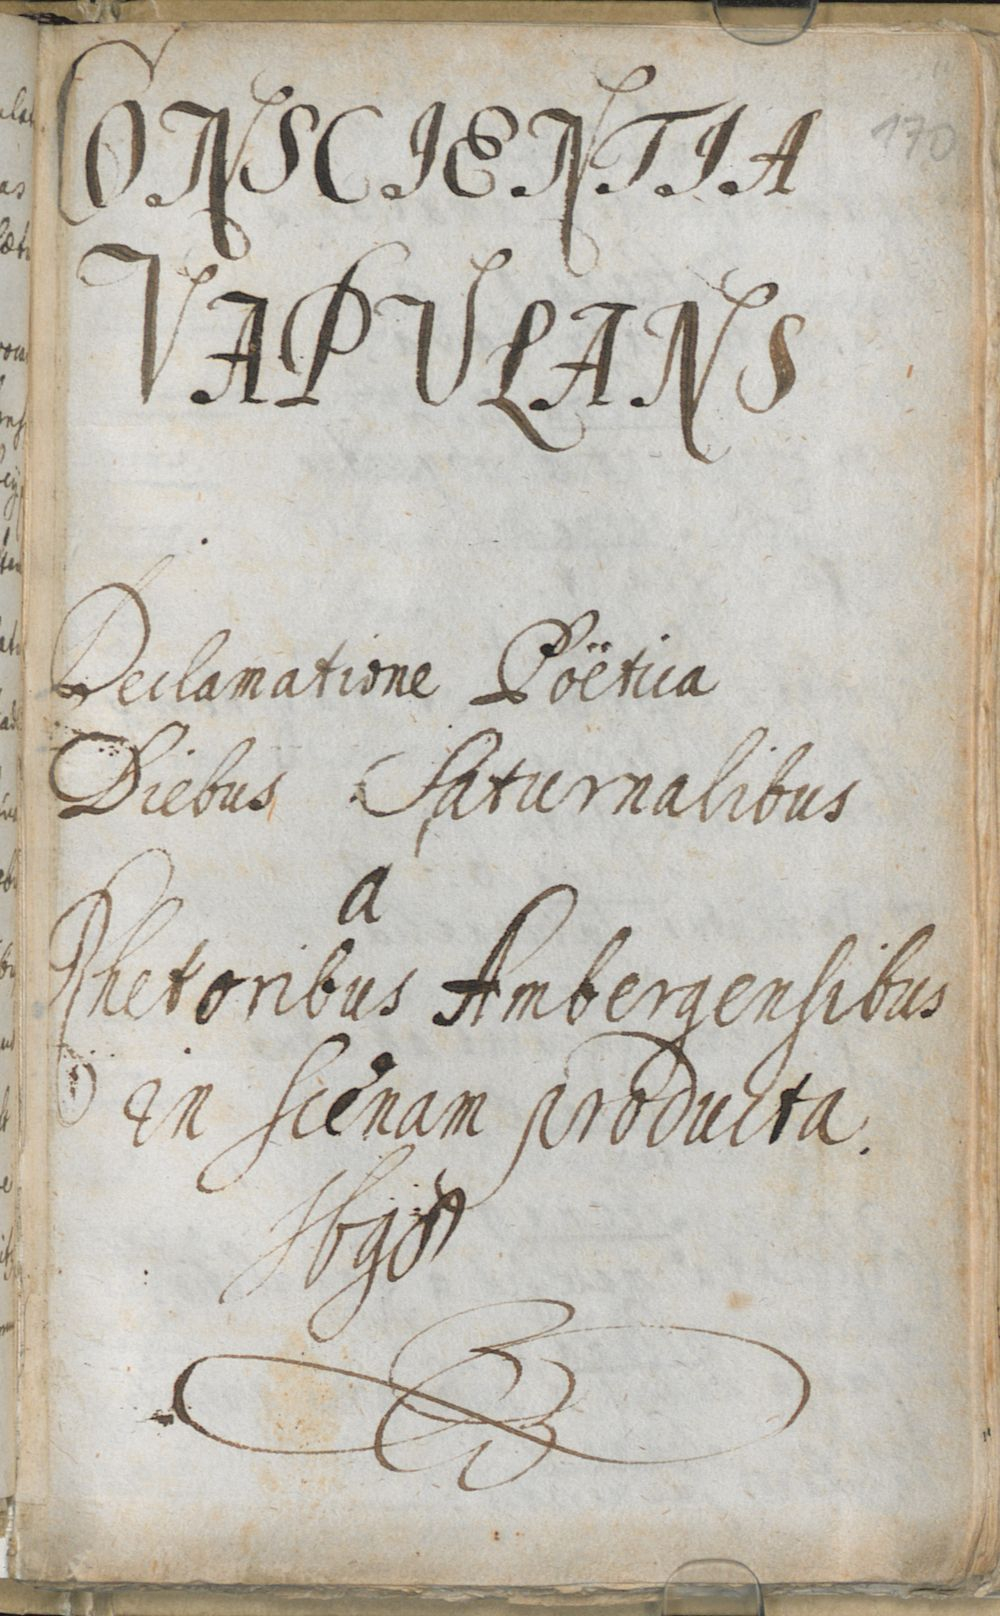 CONSCIENTIA
170
VAPULANS
Declamatione Poëtica
Diebus Saturnalibus
a
Rhetoribus Ambergensibus
in scenam producta.